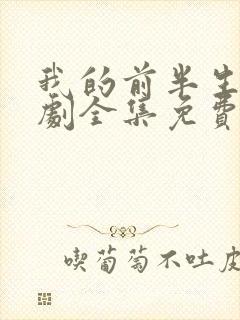 我的前半生
劇全集免費
喫葡萄不吐皮